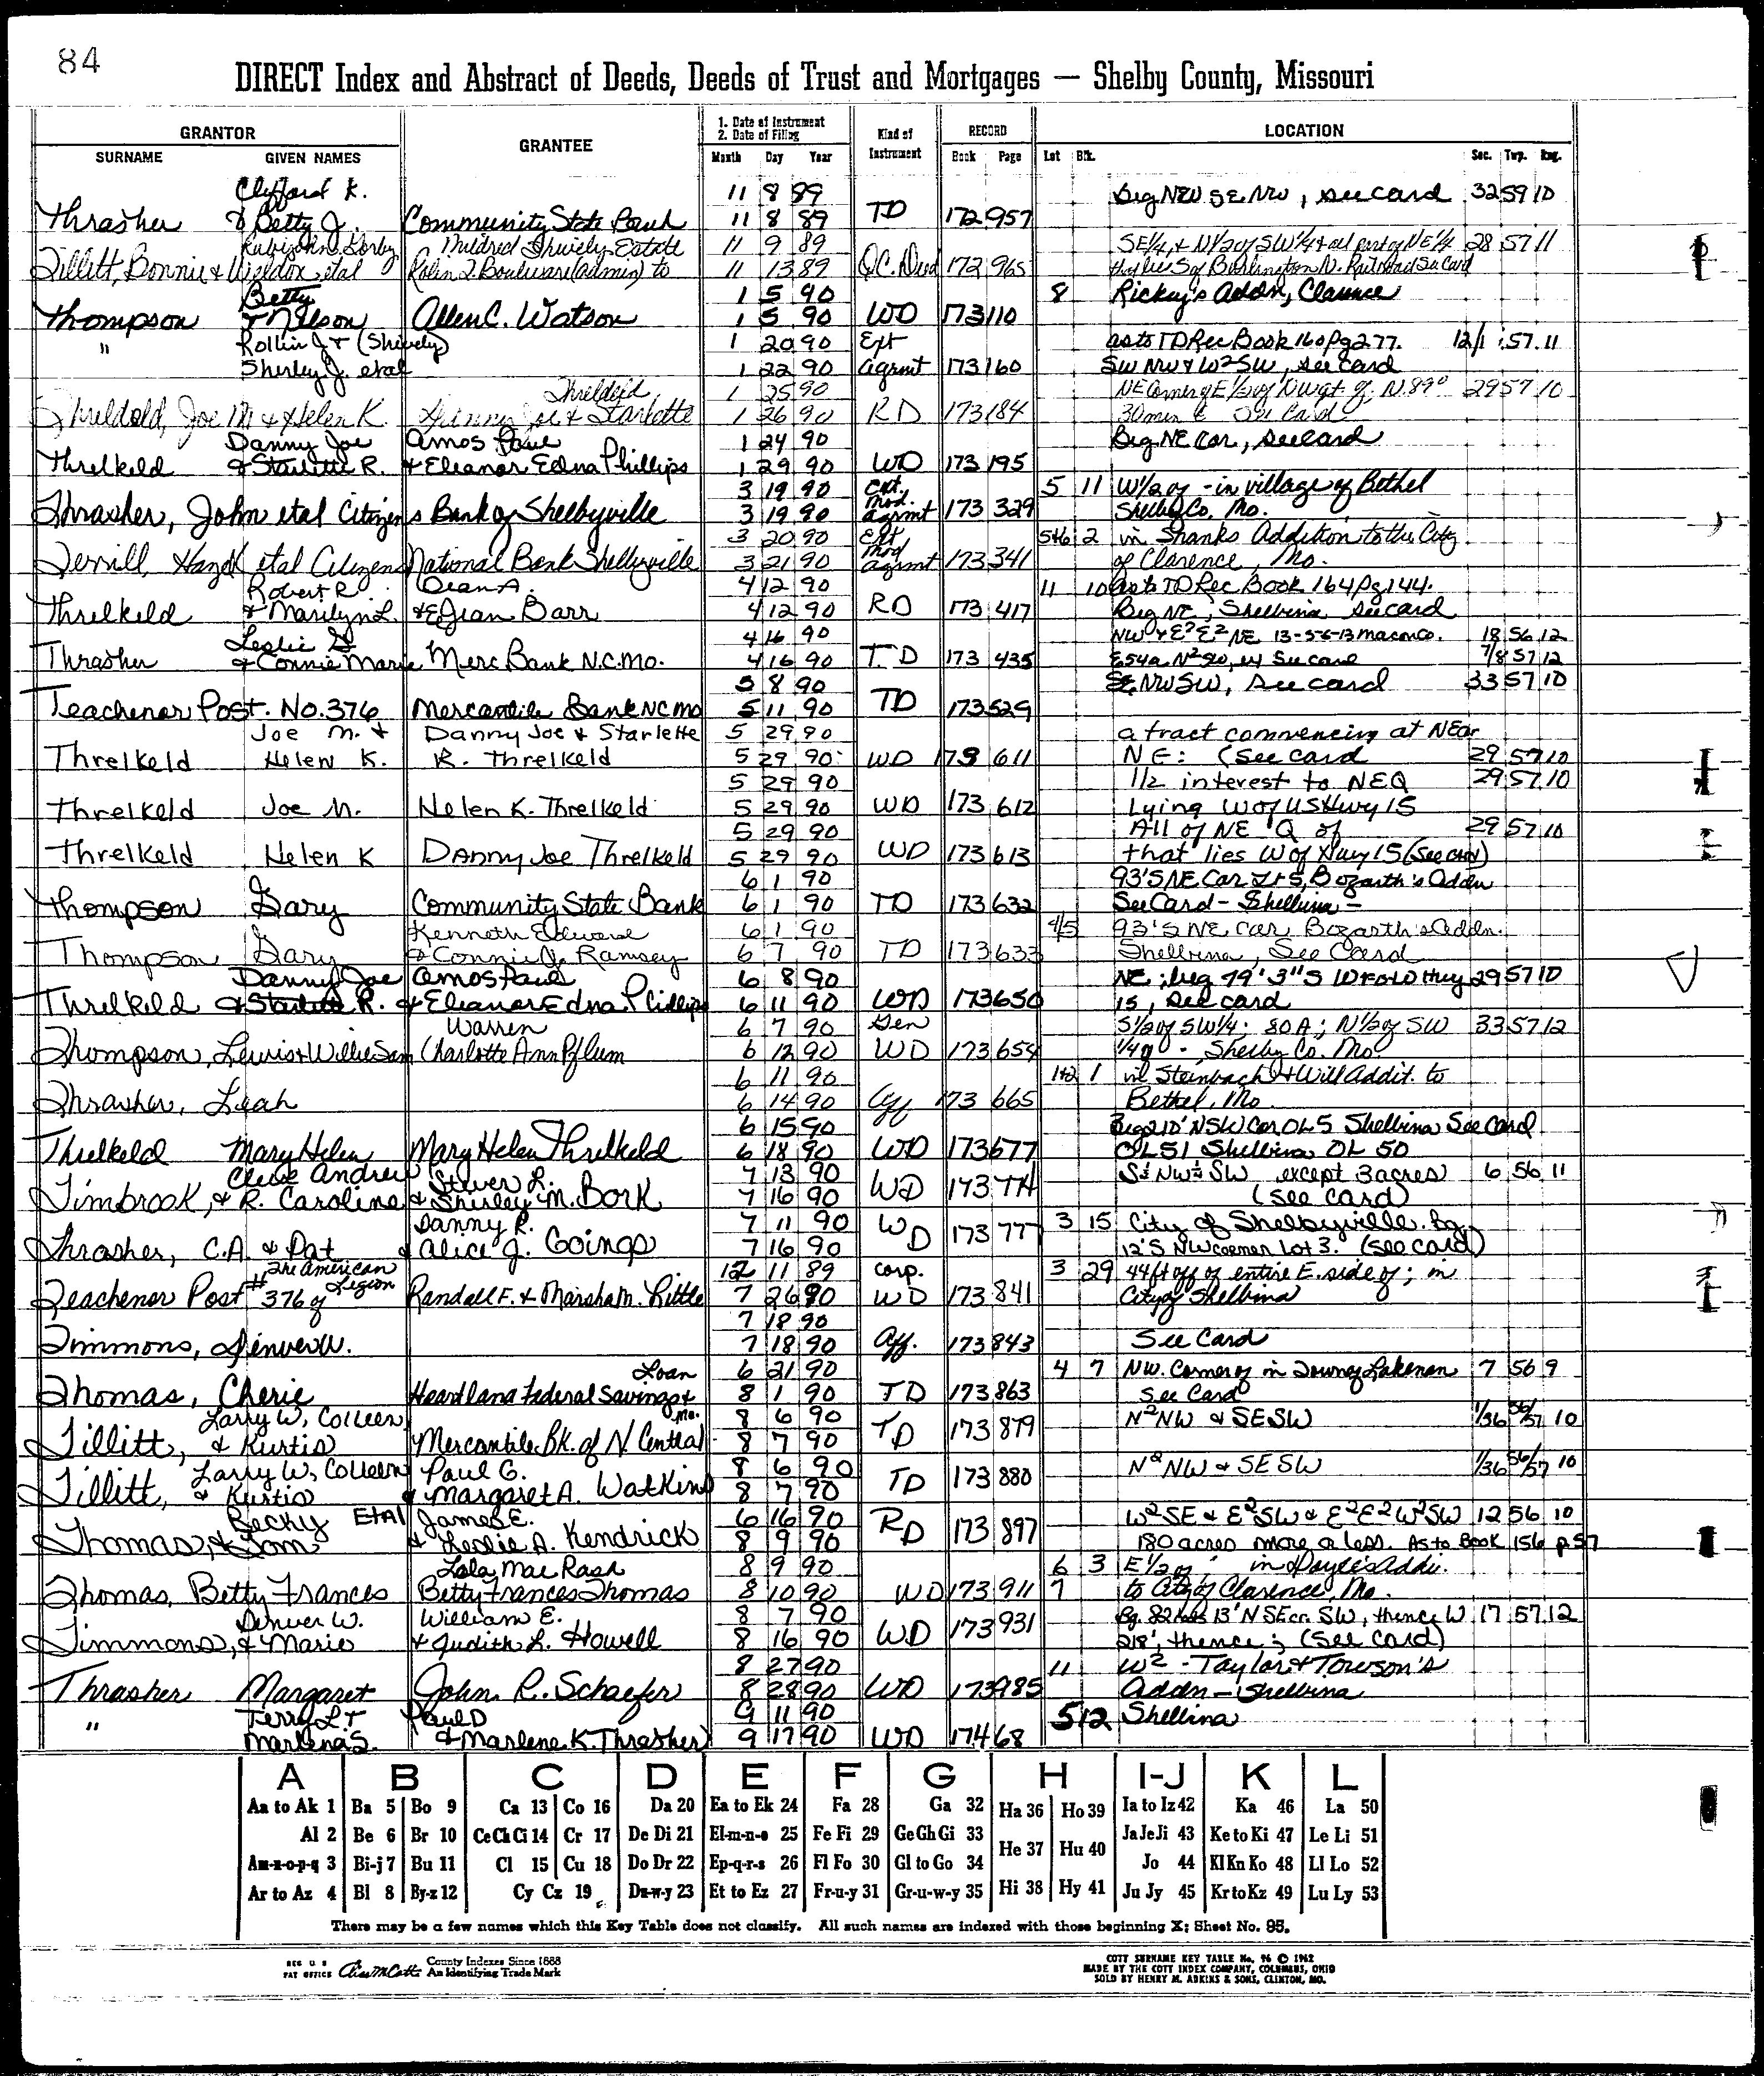 84
DIRECT Index and Abstract of Deeds, Deeds of Trust and Mortgages — Shelby County, Missouri
GRANTOR GRANTEE 1. Date of Instrument 2. Date of Filing Kind of Instrument RECORD LOCATION
SURNAME GIVEN NAMES Month Day Year Book Page Lot Blk. Sec. Twp. Rng.
Clifford K. 11 8 89 Beg NEW SE NW, see card 32 59 10
Thrasher & Betty J. Community State Bank 11 8 89 TD 172 957
Mildred Shively Estate 11 9 89 SE1/4, & N1/2 of SW1/4 & all part of NE1/4 28 57 11
Tillitt, Bonnie & Weldon etal (admin) to 11 13 89 Q.C. Deed 172 965 that lies S of Burlington N. Railroad See Card
Betty 1 5 90 8 Rickey's Addn, Clarence
Thompson & Nelson Allen C. Watson 1 5 90 WD 173 110
" Rollin J & (Shively) 1 20 90 Ext as to TD Rec Book 160 Pg 277. 12/1 57 11
Shirley J. etal 1 22 90 agrmt 173 160 SW NW & W2 SW, see card
1 25 90 NE Corner of E 1/2 of NW qt. of N. 89° 29 57 10
Joe M & Helen K. & Starlette 1 26 90 RD 173 184 30 min E See Card
Danny Joe Amos Paul 1 24 90 Beg NE Cor, see card
Threlkeld & Starlette R. & Eleanor Edna Phillips 1 29 90 WD 173 195
3 19 90 Ext. 5 11 W1/2 of - in village of Bethel
Thrasher, John etal Citizens Bank of Shelbyville 3 19 90 Mod. agrmt 173 329 Shelby Co. Mo.
3 20 90 Ext 5&6 2 in Shanks Addition to the City
Terrill, Hazel etal Citizens National Bank Shelbyville 3 21 90 Mod agrmt 173 341 of Clarence, Mo.
Robert R. Dean A. 4 12 90 11 10 as to TD Rec Book 164 Pg 144.
Threlkeld & Marilyn L. & E Jean Barr 4 12 90 RD 173 417 Beg NE, Shelbina see card
Leslie G 4 16 90 NW & E2 E2 NE 13-56-13 Macon Co. 18 56 12
Thrasher & Connie Marie Merc Bank N.C. Mo. 4 16 90 T.D 173 435 E54a N2 SW, ex See card 7/8 57 12
5 8 90 SE, NW SW, see card 33 57 10
Teachenor Post. No. 376 Mercantile Bank NC MO 5 11 90 TD 173 529
Joe M. & Danny Joe & Starlette 5 29 90 a tract commencing at NEar
Threlkeld Helen K. R. Threlkeld 5 29 90 WD 173 611 NE: (See card 29 57 10
5 29 90 1/2 interest to NEQ 29 57 10
Threlkeld Joe M. Helen K. Threlkeld 5 29 90 WD 173 612 Lying W of US Hwy 15
5 29 90 All of NE Q of 29 57 10
Threlkeld Helen K Danny Joe Threlkeld 5 29 90 WD 173 613 that lies W of Hwy 15 (see card)
6 1 90 93'S NE Cor Lt 5, Bozarth's Addn
Thompson Gary Community State Bank 6 1 90 TD 173 632 See Card - Shelbina -
Kenneth Edward 6 1 90 4/5 93'S NE Cor Bozarth's Addn.
Thompson Gary & Connie J. Ramsey 6 7 90 TD 173 633 Shelbina, See Card
Danny Joe Amos Paul 6 8 90 NE; beg 79' 3" S W to W Hwy 29 57 10
Threlkeld & Starlette R. & Eleanor Edna Phillips 6 11 90 WD 173 650 15, see card
Warren 6 7 90 Gen S1/2 of SW1/4; 80 A; N1/2 of SW 33 57 12
Thompson, Lewis & Willie Sam Charlotte Ann Pflum 6 12 90 WD 173 654 1/4 of - Shelby Co. Mo.
6 11 90 1&2 1 in Steinbach & Will Addit. to
Thrasher, Leah 6 14 90 Aff 173 665 Bethel, Mo.
6 15 90 Beg 210' N SW Cor OL 5 Shelbina See Card
Threlkeld Mary Helen Mary Helen Threlkeld 6 18 90 WD 173 677 OL 51 Shelbina OL 50
Cleve Andrew Steven L. 7 13 90 S½ NW¼ SW except 3 acres 6 56 11
Timbrook, & R. Caroline & Shirley M. Bork 7 16 90 WD 173 774 (see card)
Danny R. 7 11 90 3 15 City of Shelbyville. Bg
Thrasher, C.A. & Pat & Alice J. Goings 7 16 90 WD 173 777 12'S NW corner Lot 3. (see card)
The American 12 11 89 Corp. 3 29 44 ft off of entire E. side of; in
Teachenor Post #376 of Legion Randall F. & Marsha M. Little 7 26 90 WD 173 841 City of Shelbina
7 18 90
Timmons, Denver W. 7 18 90 Aff. 173 843 See Card
Loan 6 21 90 4 7 NW. Corner of in Lakenan 7 56 9
Thomas, Cherie Heartland Federal Savings & 8 1 90 TD 173 863 See Card
Larry W, Colleen Mo. 8 6 90 N2 NW & SESW 1/36 56/57 10
Tillitt, & Kurtis Mercantile Bk. of N Central 8 7 90 TD 173 879
Larry W, Colleen Paul G. 8 6 90 N2 NW & SESW 1/36 56/57 10
Tillitt, & Kurtis & Margaret A. Watkins 8 7 90 TD 173 880
Becky Etal James E. 6 16 90 W2 SE & E2 SW & E2 E2 W2 SW 12 56 10
Thomas, & Tom & Leslie A. Kendrick 8 9 90 RD 173 897 180 acres more or less. As to Book 156 p 57
Lola Mae Rash 8 9 90 6 3 E 1/2 of " in Addi.
Thomas, Betty Frances Betty Frances Thomas 8 10 90 WD 173 911 7 to City of Clarence, Mo.
Denver W. William E. 8 7 90 Bg. 82 13' N SE cr. SW, thence W 17 57 12
Timmons, & Marie & Judith L. Howell 8 16 90 W.D 173 931 218', thence; (See card)
8 27 90 11 W2 - Taylor & Towson's
Thrasher Margaret John R. Schaefer 8 28 90 WD 173 985 Addn - Shelbina
" Terry L. & Paul D 9 11 90 5 12 Shelbina
Marlena S. & Marlene K. Thrasher 9 17 90 WD 174 68
A B C D E F G H I-J K L
Aa to Ak 1 Ba 5 Bo 9 Ca 13 Co 16 Da 20 Ea to Ek 24 Fa 28 Ga 32 Ha 36 Ho 39 Ia to Iz 42 Ka 46 La 50
Al 2 Be 6 Br 10 Ce Ch Ci 14 Cr 17 De Di 21 El-m-n-o 25 Fe Fi 29 Ge Gh Gi 33 He 37 Hu 40 Ja Je Ji 43 Ke to Ki 47 Le Li 51
Am-n-o-p-q 3 Bi-j 7 Bu 11 Cl 15 Cu 18 Do Dr 22 Ep-q-r-s 26 Fl Fo 30 Gl to Go 34 Jo 44 Kl Kn Ko 48 Ll Lo 52
Ar to Az 4 Bl 8 By-z 12 Cy Cz 19 Du-w-y 23 Et to Ez 27 Fr-u-y 31 Gr-u-w-y 35 Hi 38 Hy 41 Ju Jy 45 Kr to Kz 49 Lu Ly 53
There may be a few names which this Key Table does not classify. All such names are indexed with those beginning X; Sheet No. 95.
REG U. S PAT OFFICE County Indexes Since 1888 An Identifying Trade Mark
COTT SURNAME KEY TABLE No. 96 © 1962
MADE BY THE COTT INDEX COMPANY, COLUMBUS, OHIO
SOLD BY HENRY M. ADKINS & SONS, CLINTON, MO.